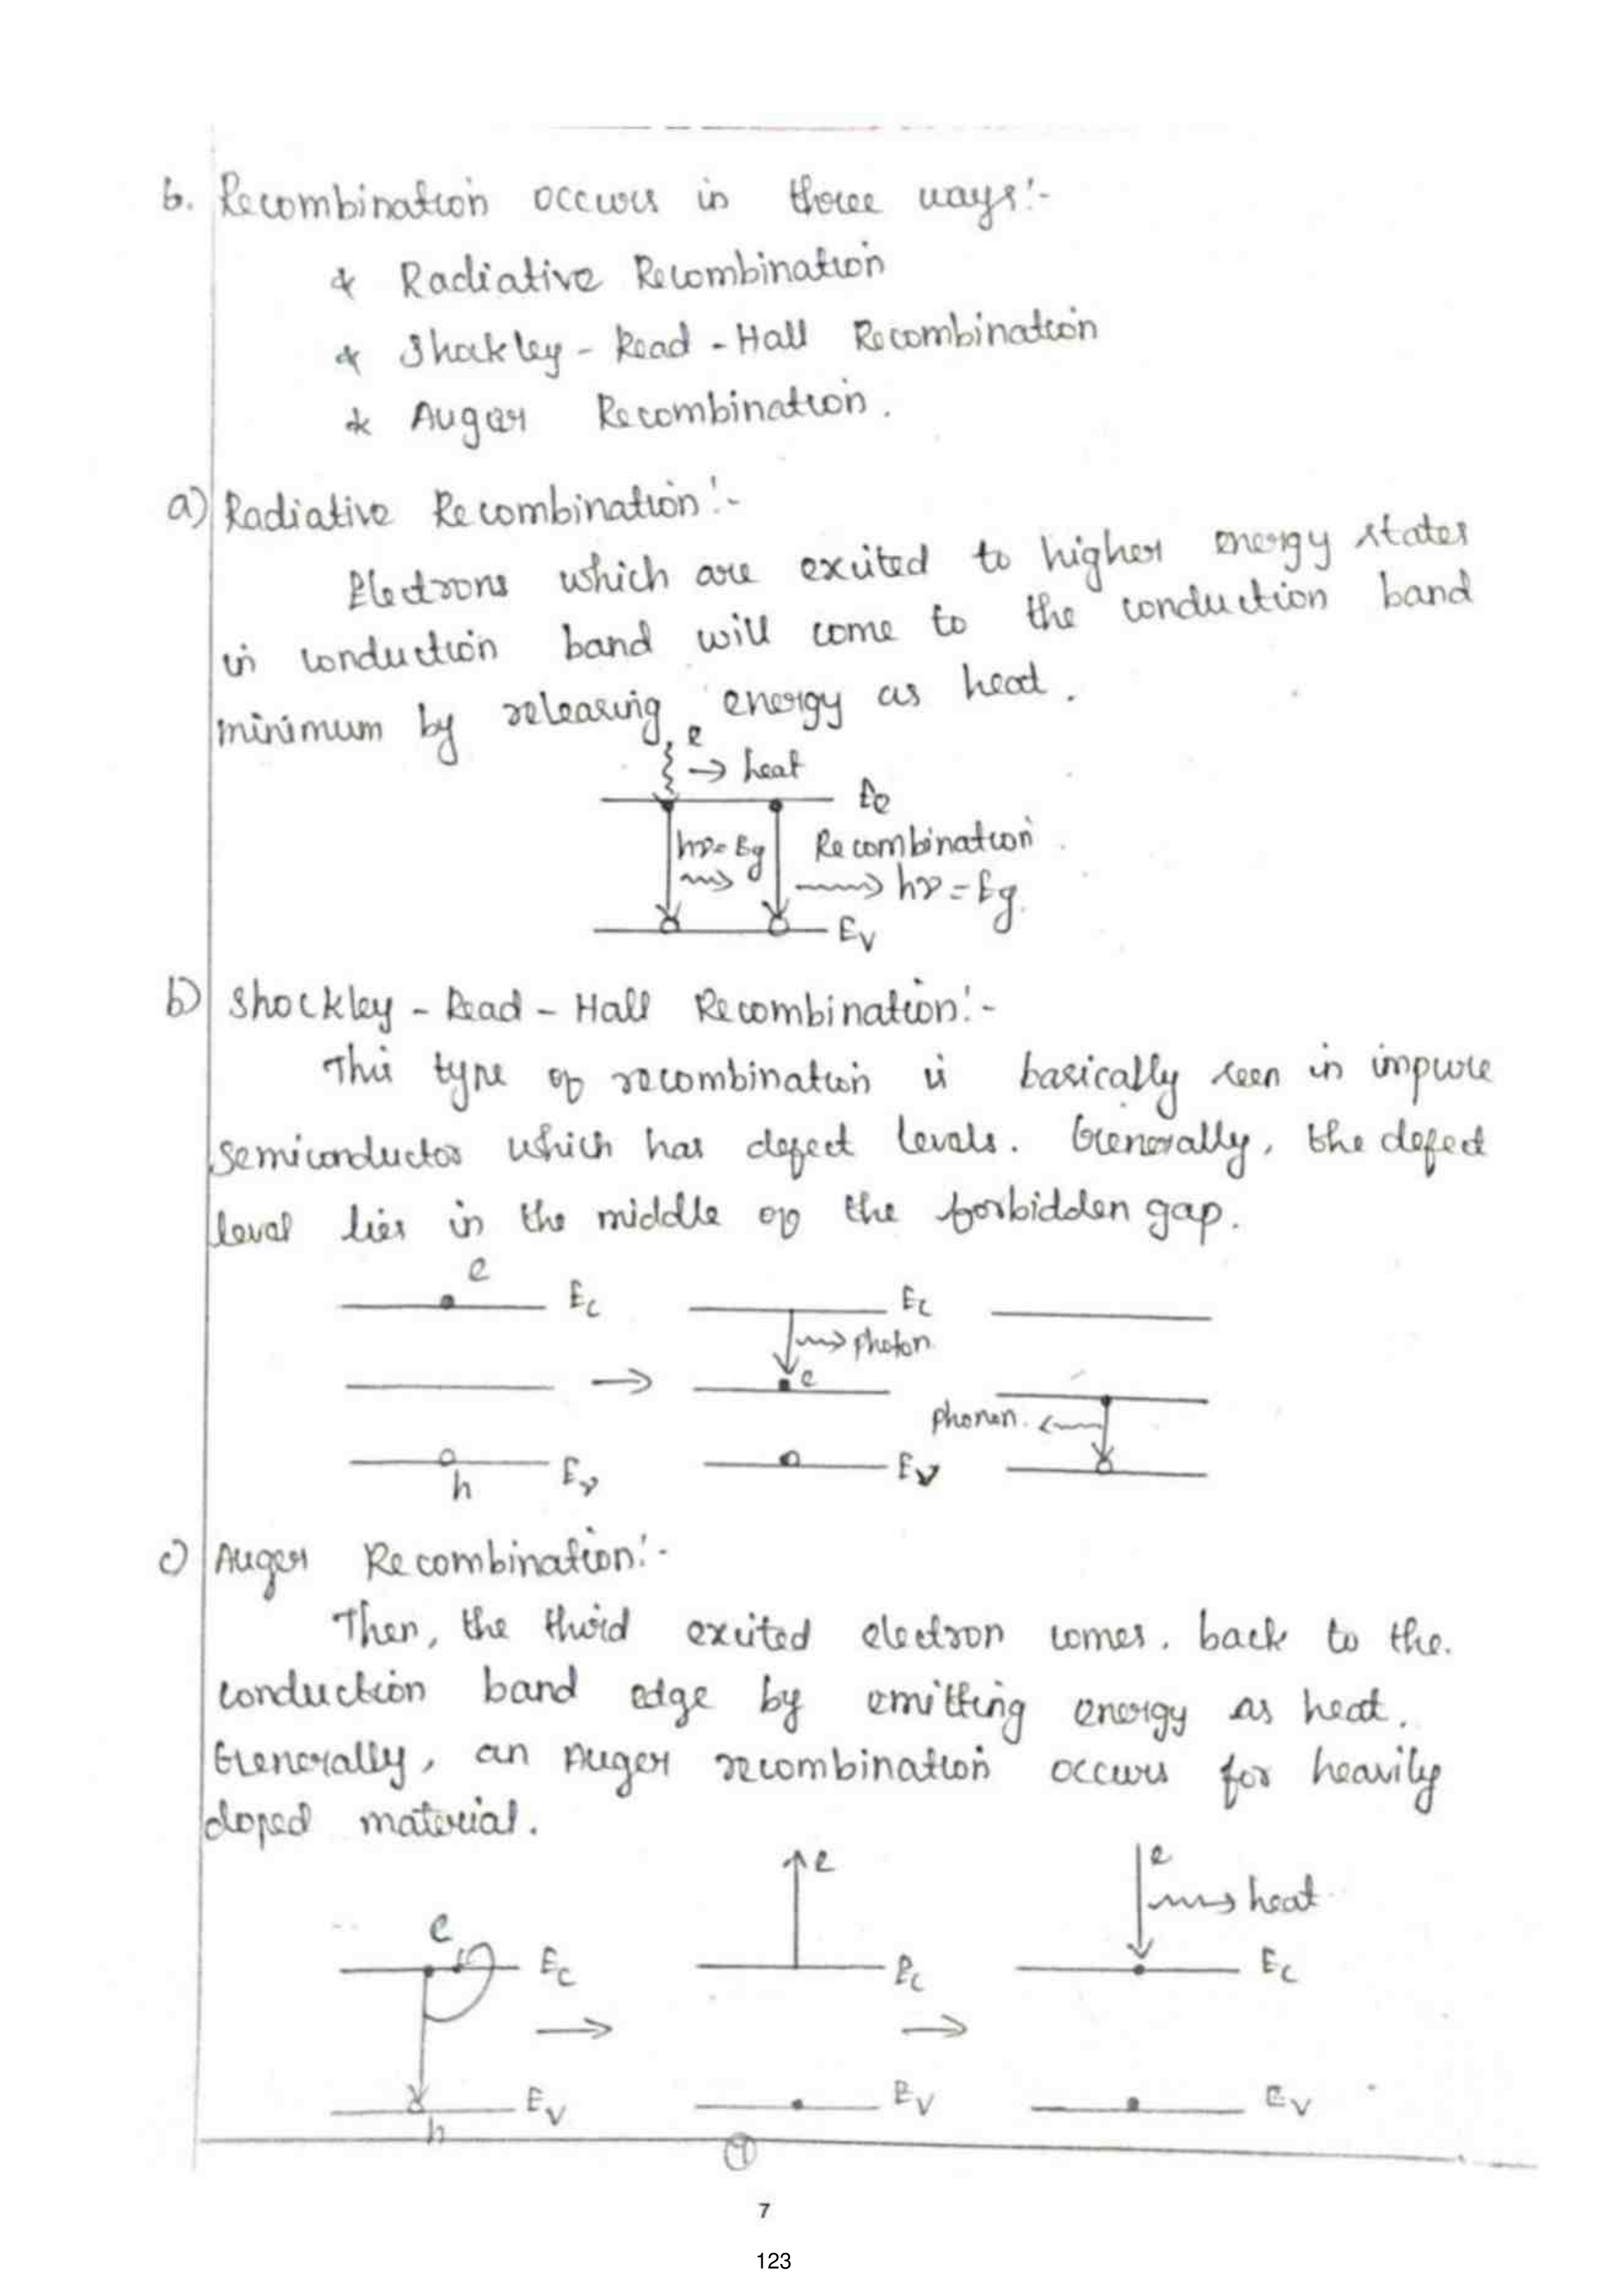 6. Recombination occurs in three ways:-
* Radiative Recombination
* Shockley - Read - Hall Recombination
* Auger Recombination.
a) Radiative Recombination:-
Electrons which are excited to higher energy states
in conduction band will come to the conduction band
minimum by releasing energy as heat.
e
→ heat
Ec
hν=Eg Recombination
hν=Eg
Ev
b) Shockley - Read - Hall Recombination:-
This type of recombination is basically seen in impure
semiconductor which has defect levels. Generally, the defect
level lies in the middle of the forbidden gap.
e
Ec Ec
→ photon
→ e
phonon.
h Ev Ev
c) Auger Recombination:-
Then, the third excited electron comes. back to the.
conduction band edge by emitting energy as heat.
Generally, an Auger recombination occurs for heavily
doped material.
e e
→ heat
e
Ec Ec Ec
→ →
Ev Ev Ev
h
7
123